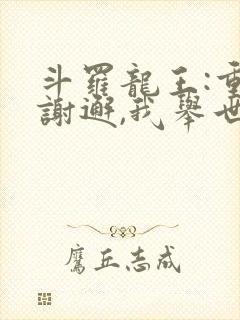 斗羅龍王:重
謝邂,我舉世
鷹丘志成